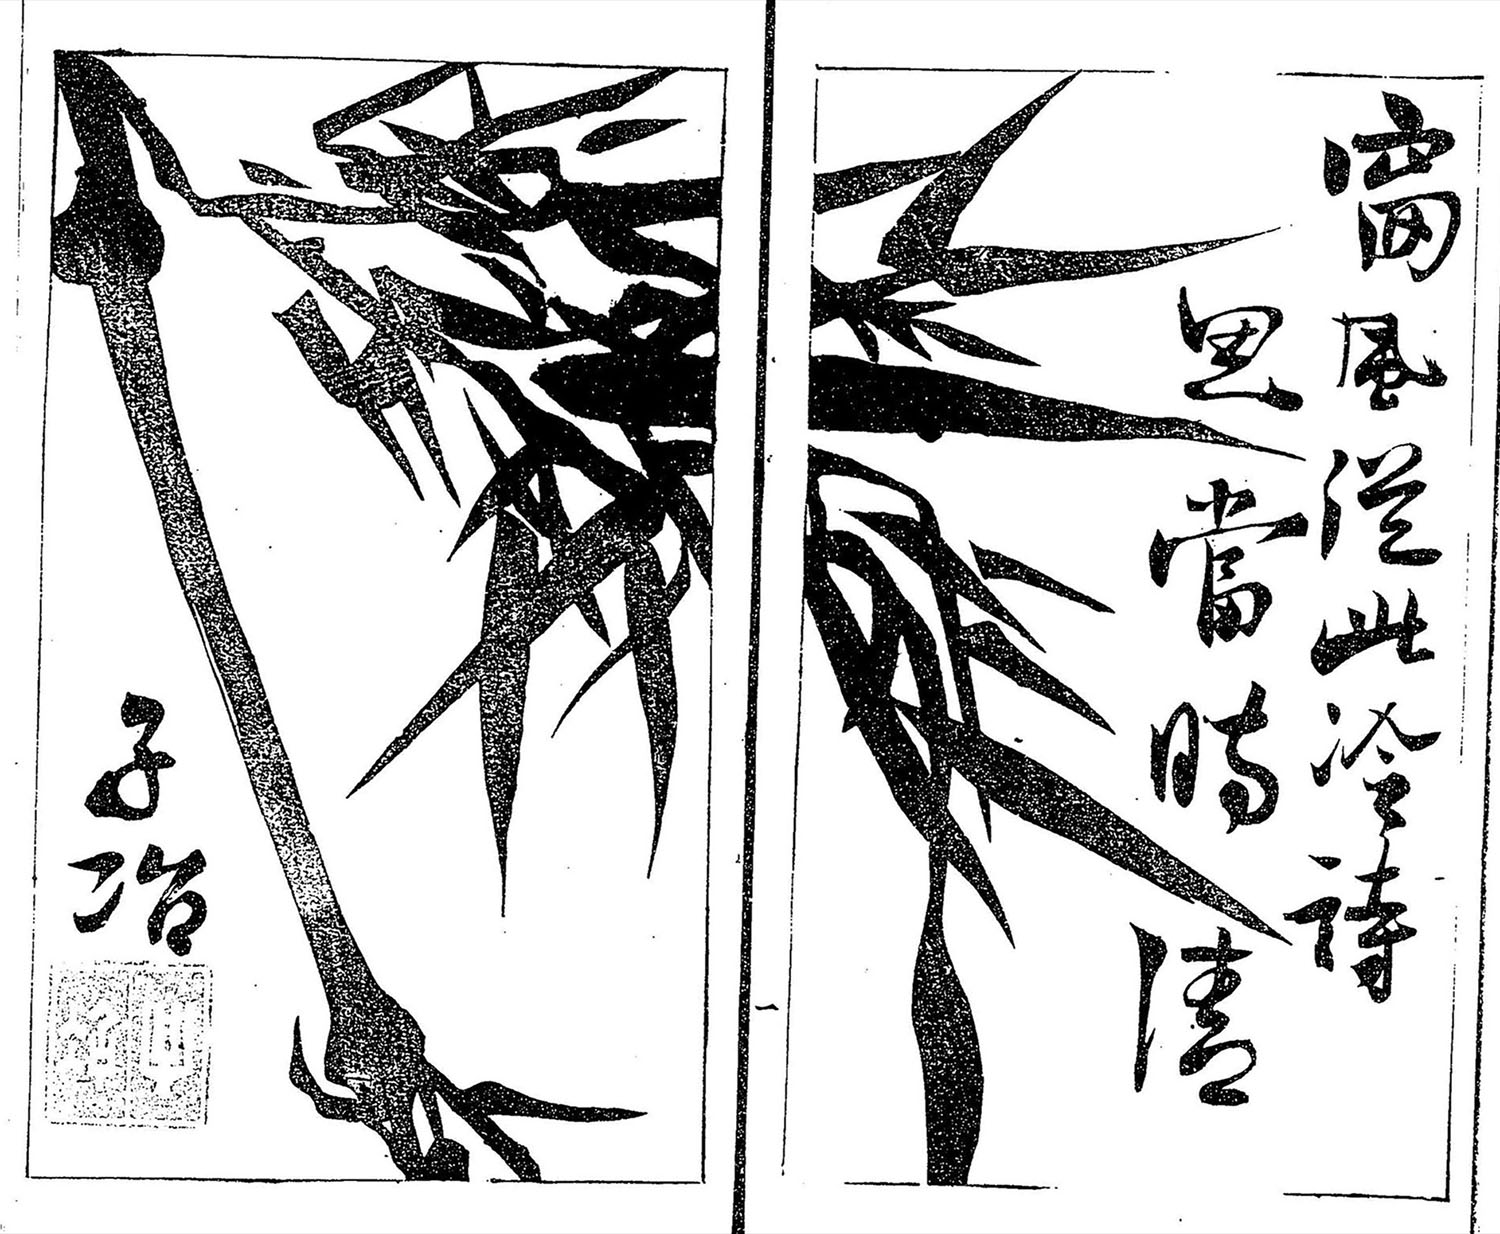 窗風從此冷詩
思當時清
子冶
一